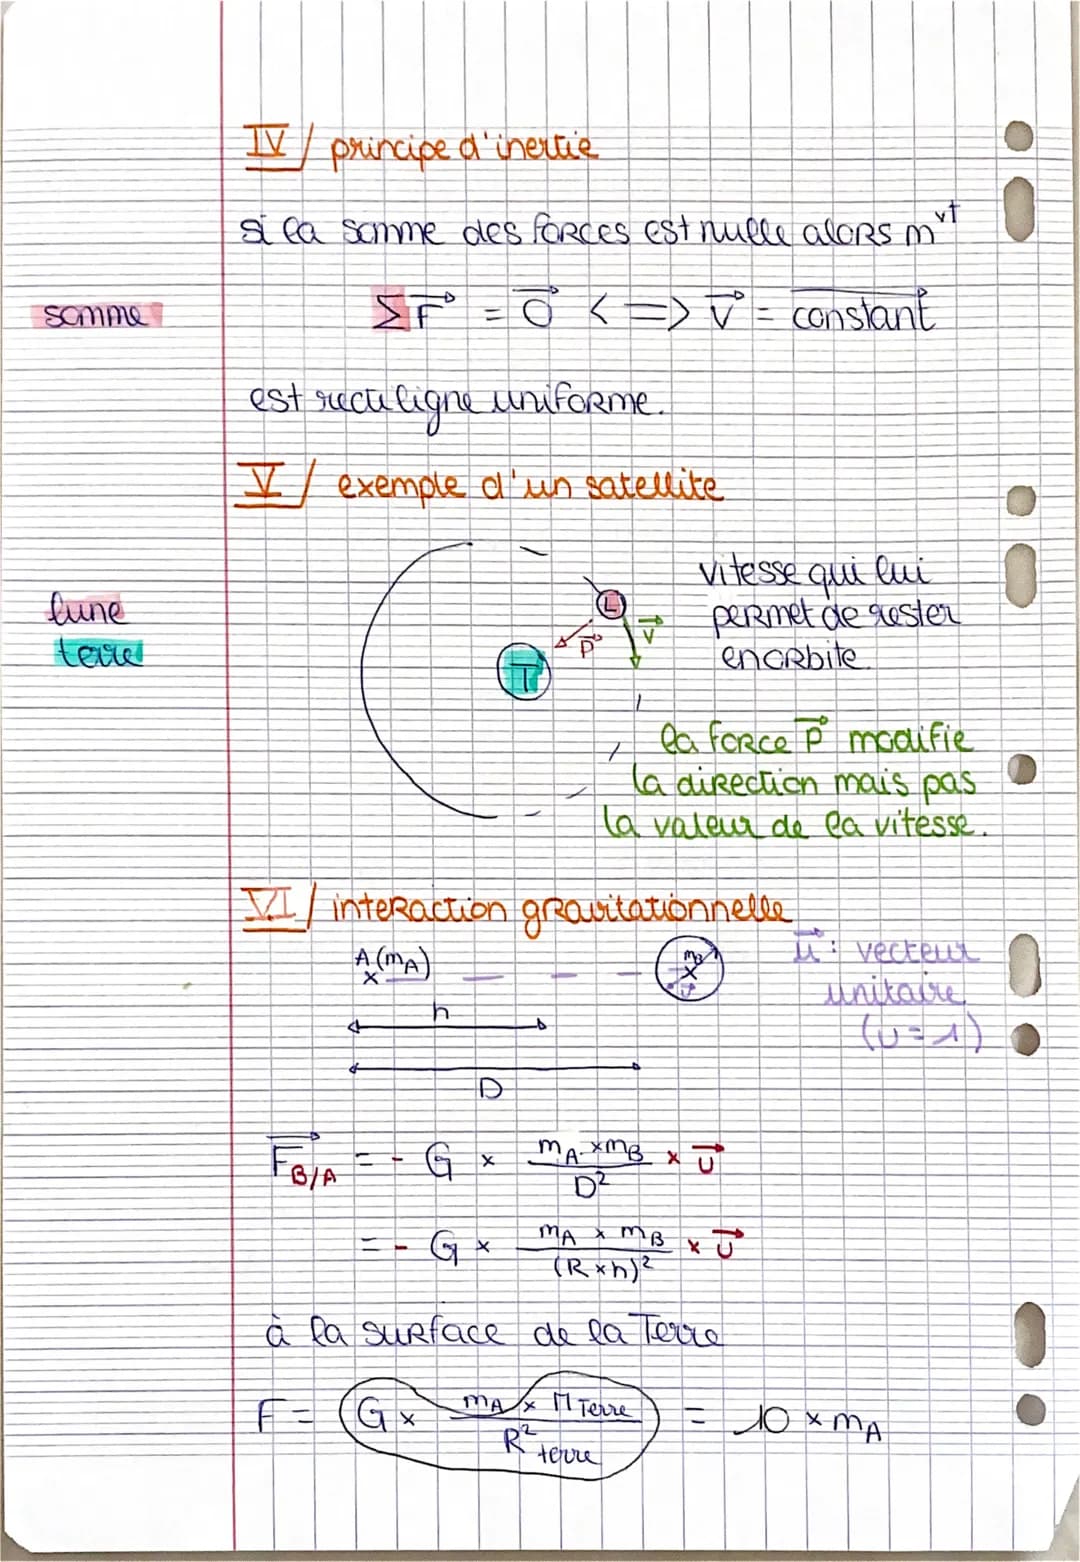 IV/ principe d'inertie
si la somme des forces est nulle alors m^vt
somme
ΣF⃗ = 0⃗ <=> v⃗ = constant
est rectiligne uniforme.
V/ exemple d'un satellite
lune
terre
L
T
P⃗
V⃗
vitesse qui lui
permet de rester
en orbite.
la force P⃗ modifie
la direction mais pas
la valeur de la vitesse.
VI/ interaction gravitationnelle
A (mA)
x
mB
x
u⃗ : vecteur
unitaire
(u = 1)
h
D
F⃗B/A = - G × (mA × mB)/D² × u⃗
= - G × (mA × mB)/(R × h)² × u⃗
à la surface de la Terre
F = G × (mA × MTerre)/R²terre = 10 × mA